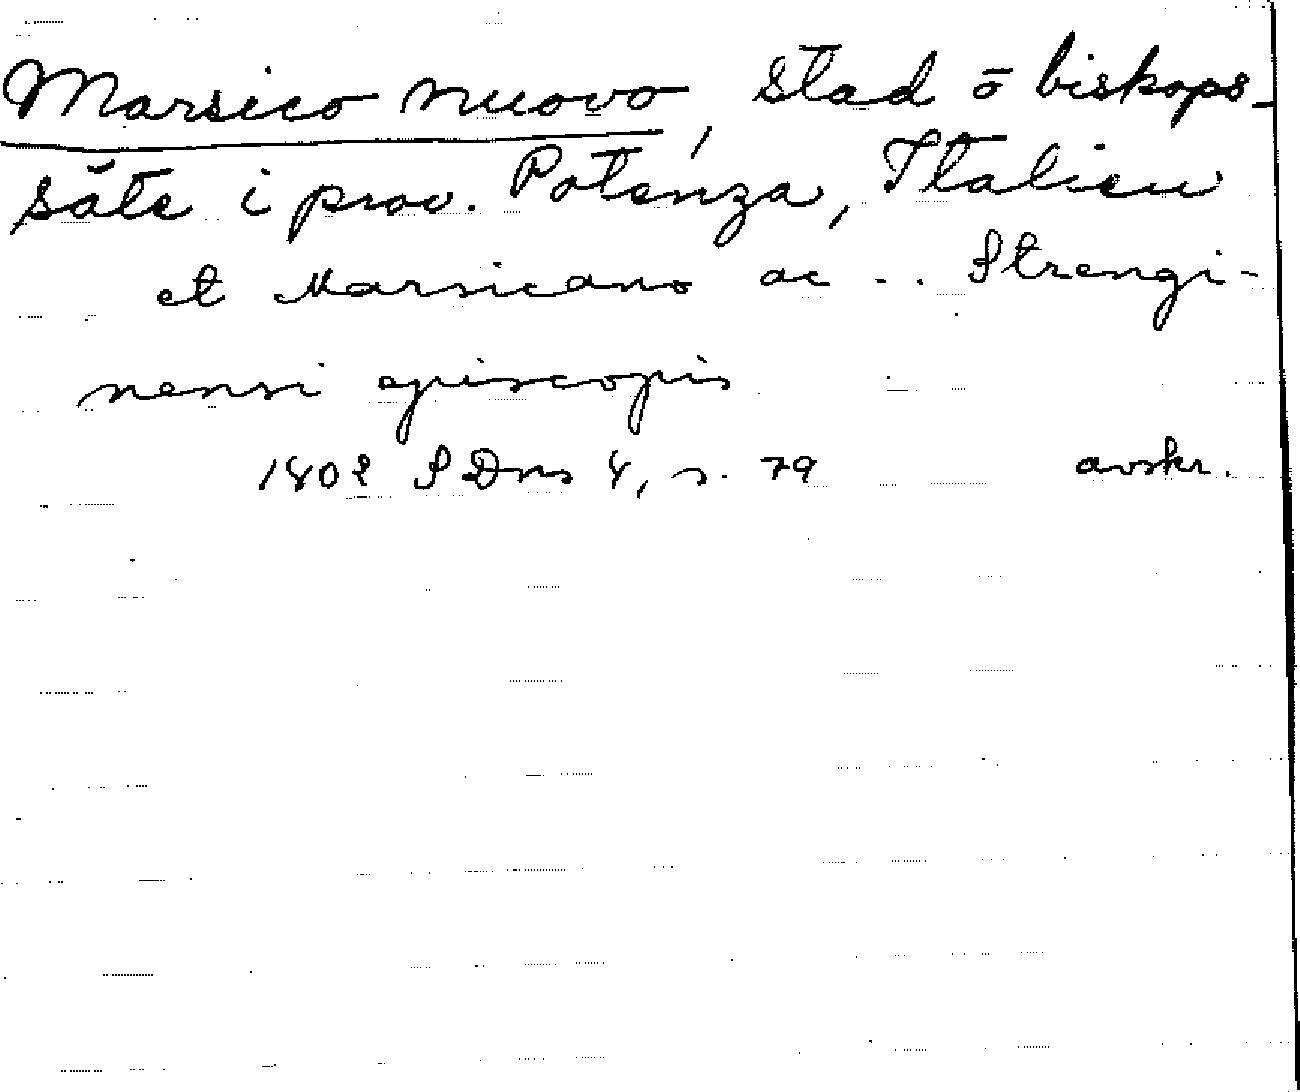 Marsico nuovo, stad o biskops-
säte i prov. Potenza, Italien
et Marsicano ac - . . Strengi-
nensi episcopis
1402 SDns 4, s. 79 avskr.